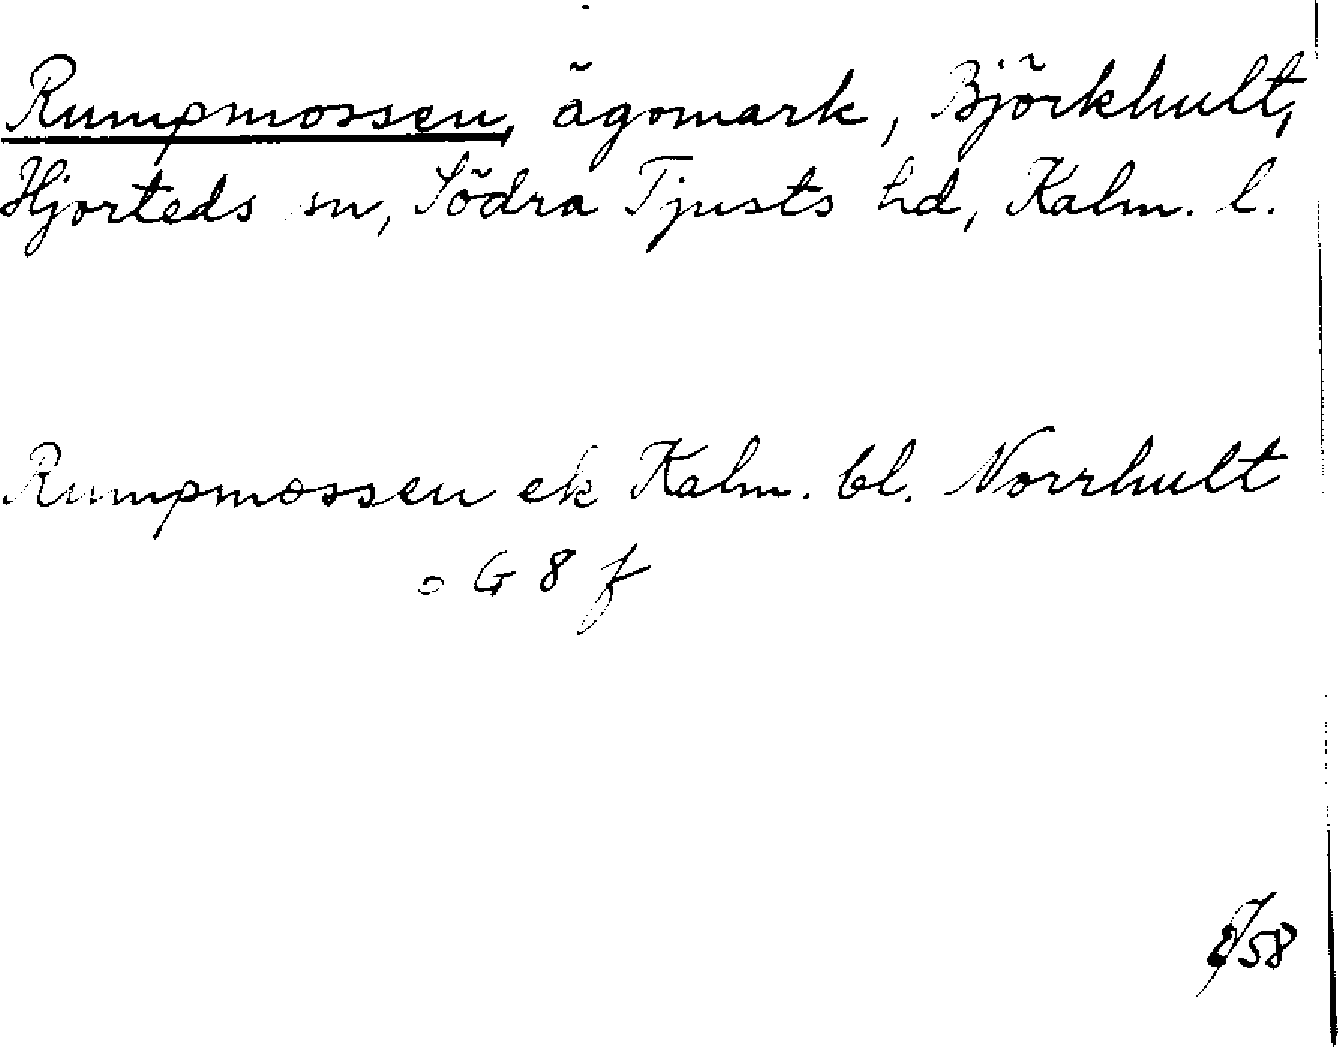 Rumpmossen, ägomark, Björkhult,
Hjorteds sn, Södra Tjusts hd, Kalm. l.
Rumpmossen ek Kalm. bl. Norrhult
G 8 f
58